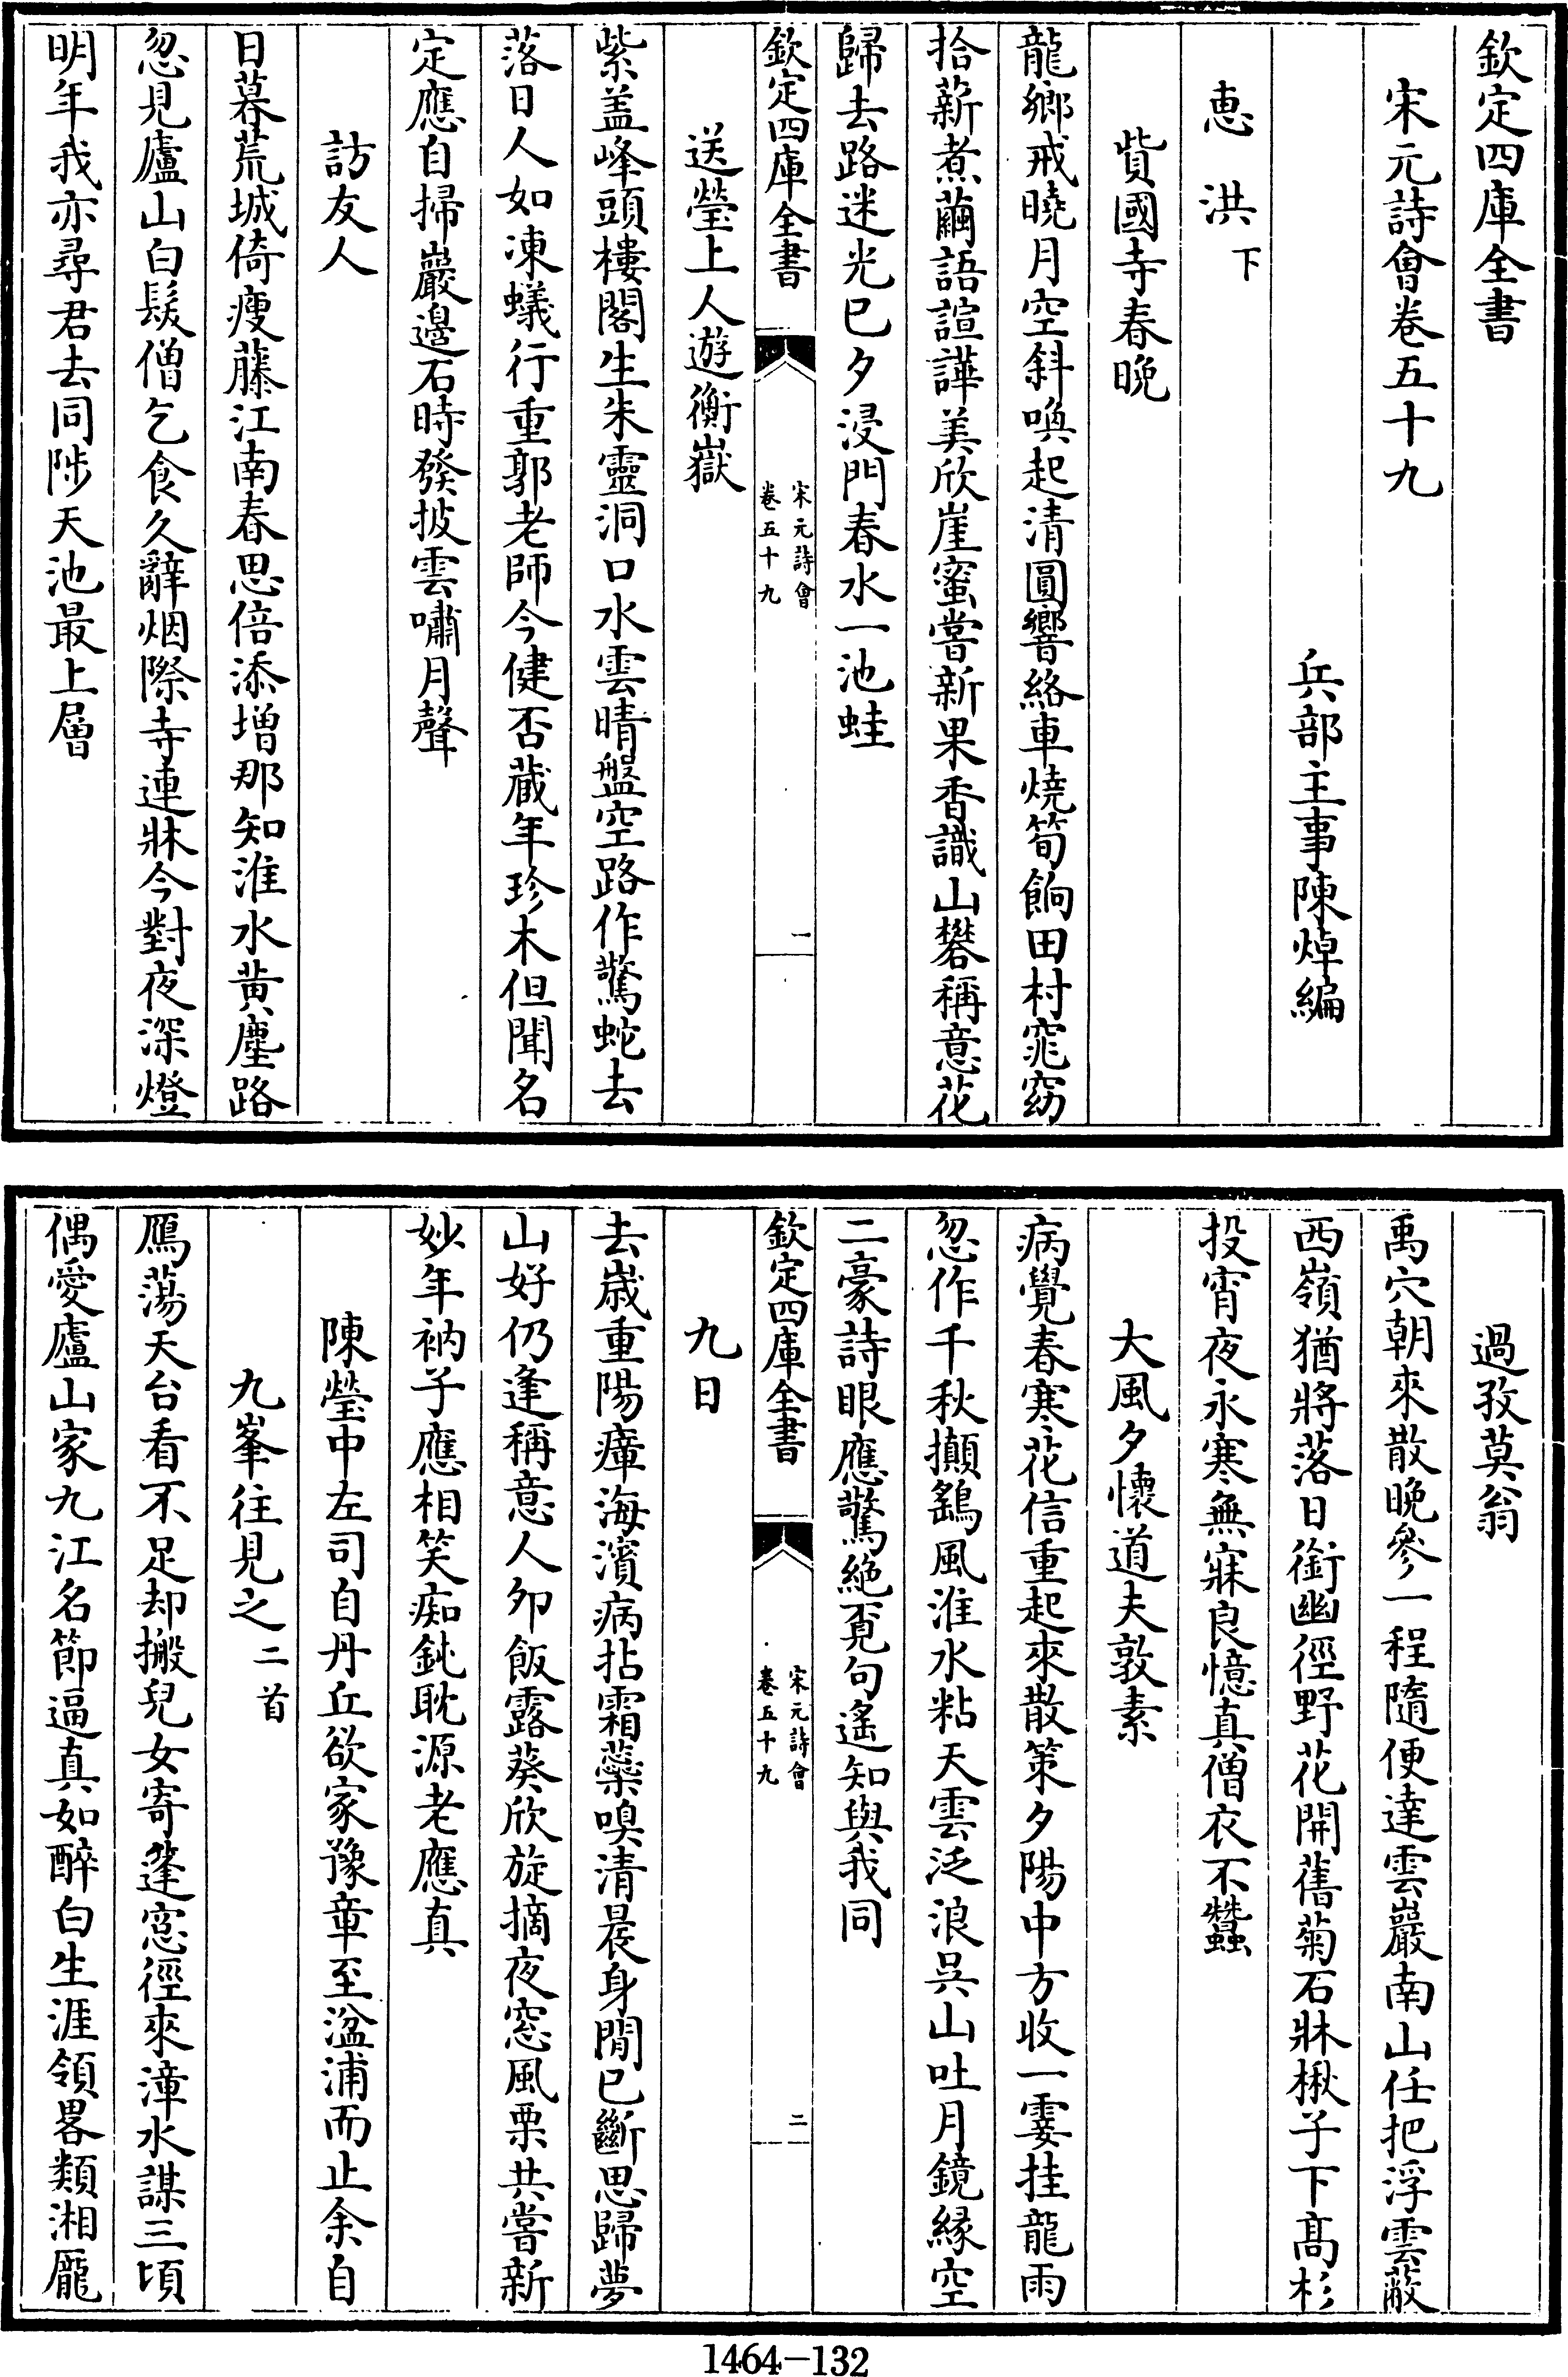 欽定四庫全書
宋元詩會卷五十九
兵部主事陳焯編
惠洪下
貲國寺春晚
龍鄉戒曉月空斜喚起清圓響絡車燒筍餉田村窕窈
拾薪煮繭語諠譁美欣崖蜜嘗新果香識山礬稱意花
歸去路迷光已夕浸門春水一池蛙
欽定四庫全書
宋元詩會
卷五十九
一
送瑩上人遊衡嶽
紫盖峰頭樓閣生朱靈洞口水雲晴盤空路作驚蛇去
落日人如凍蟻行重郭老師今健否蔵年珍木但聞名
定應自掃巖邊石時發披雲嘯月聲
訪友人
日暮荒城倚瘦藤江南春思倍添增那知淮水黄塵路
忽見廬山白髮僧乞食久辭烟際寺連牀今對夜深燈
明年我亦尋君去同陟天池最上層
過孜莫翁
禹穴朝來散晚參一程隨便達雲巖南山任把浮雲蔽
西嶺猶將落日銜幽徑野花開舊菊石牀楸子下髙杉
投宵夜永寒無寐良憶真僧衣不蠶
大風夕懷道夫敦素
病覺春寒花信重起來散策夕陽中方收一霎挂龍雨
忽作千秋攧鷂風淮水粘天雲泛浪呉山吐月鏡縁空
二豪詩眼應驚絶覓句遙知與我同
欽定四庫全書
宋元詩會
卷五十九
二
九日
去歳重陽瘴海濱病拈霜蘂嗅清晨身閒已斷思歸夢
山好仍逢稱意人夘飯露葵欣旋摘夜窓風栗共嘗新
妙年衲子應相笑痴鈍耽源老應真
陳瑩中左司自丹丘欲家豫章至湓浦而止余自
九峯往見之二首
鴈蕩天台看不足却搬兒女寄蓬窓徑來漳水謀三頃
偶愛廬山家九江名節逼真如醉白生涯領畧類湘龎
1464-132